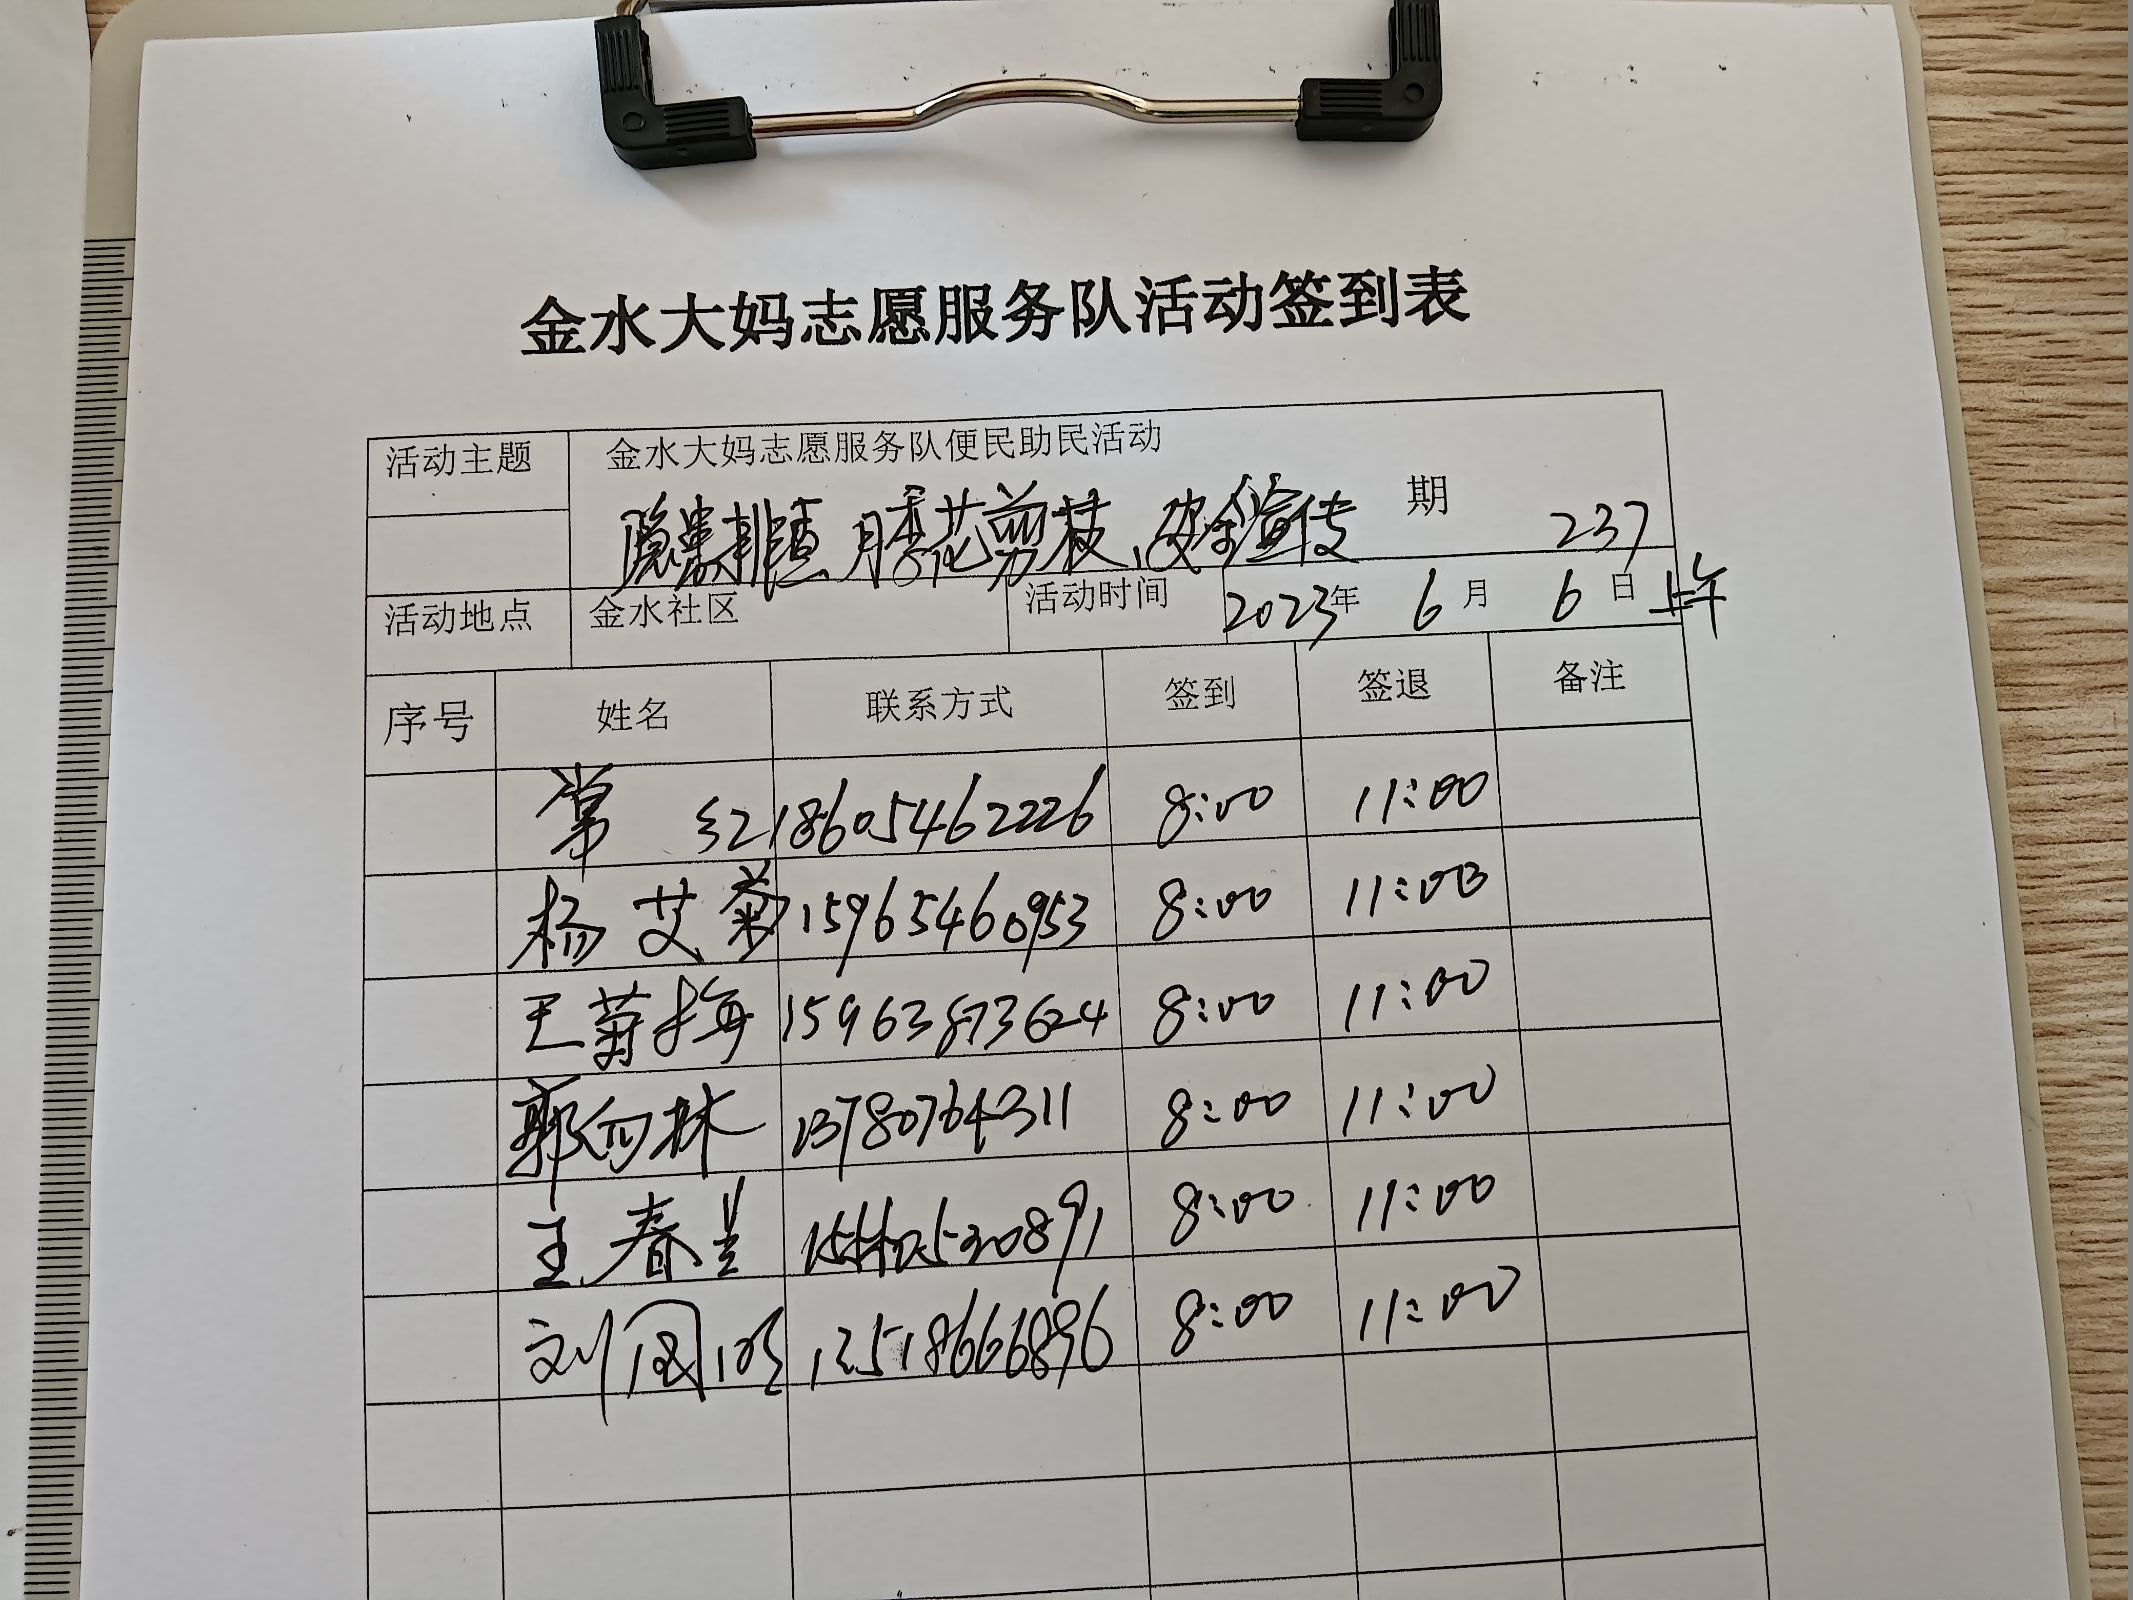 金水大妈志愿服务队活动签到表
活动主题 金水大妈志愿服务队便民助民活动
隐患排查 月季花剪枝、安全宣传 期 237
活动地点 金水社区 活动时间 2023年 6月 6日 上午
序号 姓名 联系方式 签到 签退 备注
常红 18605462226 8:00 11:00
杨艾菊 15965460953 8:00 11:00
王菊梅 15963873624 8:00 11:00
郭向林 13780764311 8:00 11:00
王春兰 8:00 11:00
刘国明 13518666896 8:00 11:00